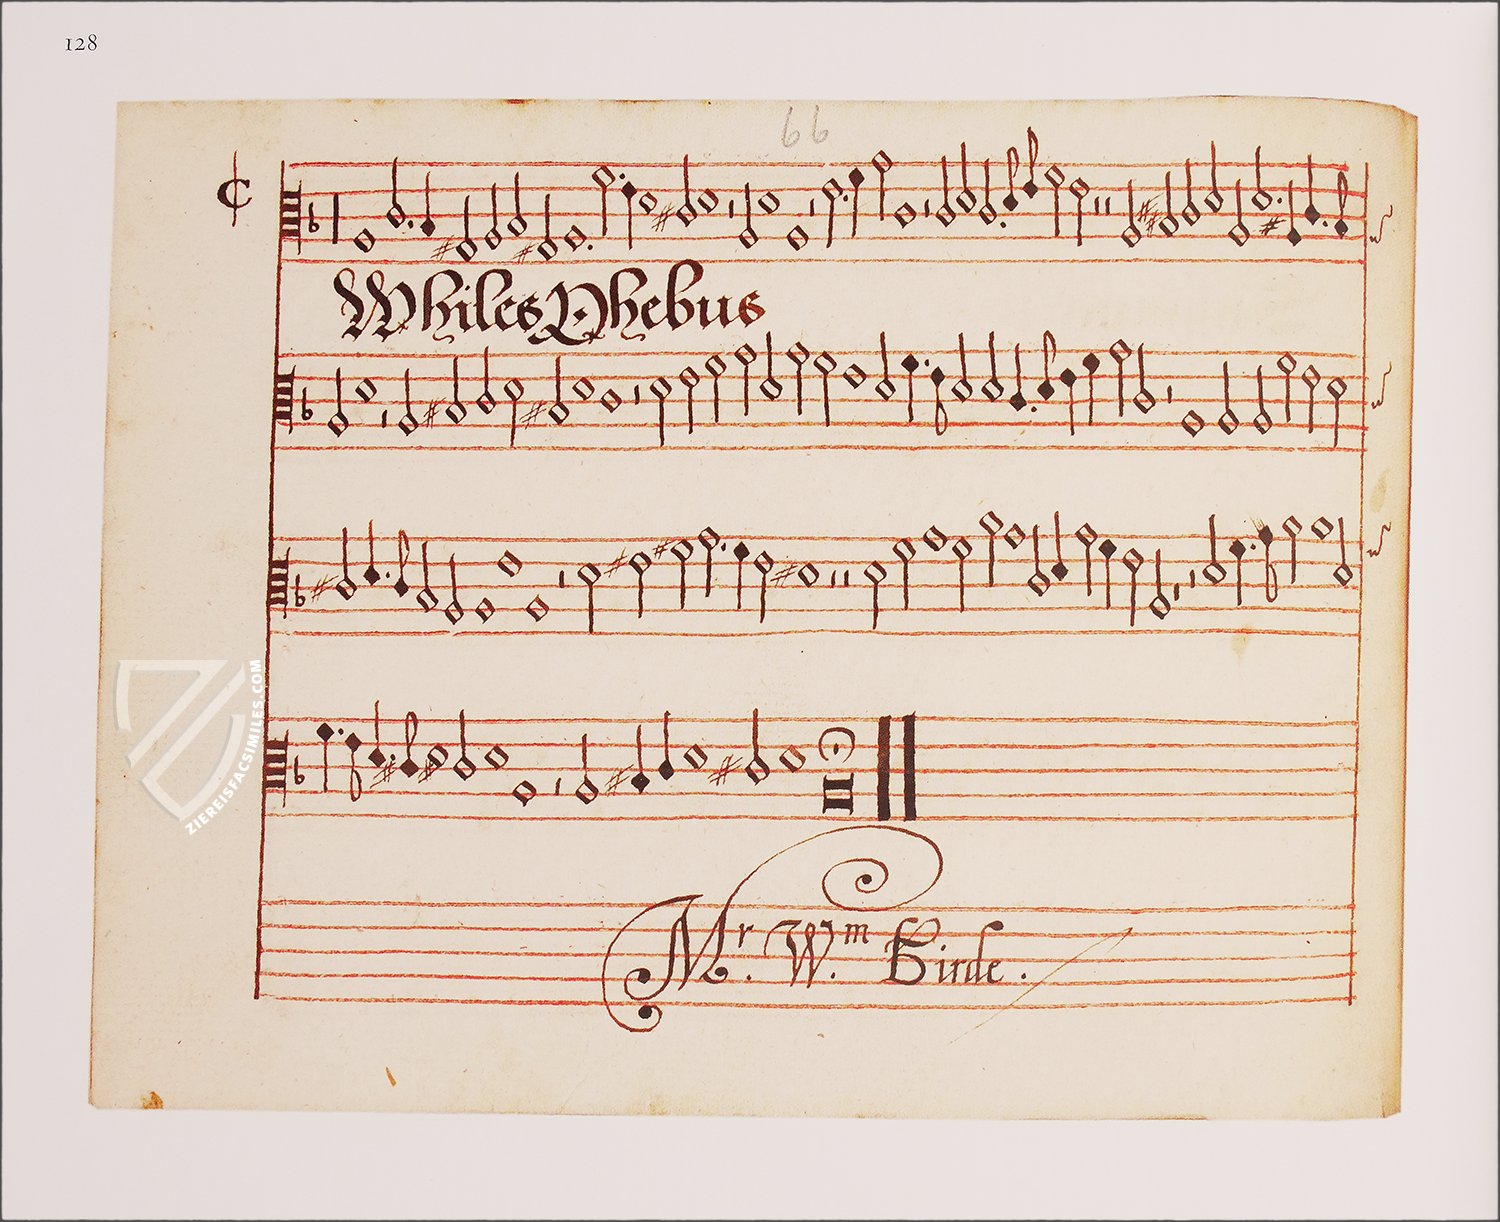 128
66
Whiles Phebus
ZIEREISFACSIMILES.COM
Mr. Wm. Birde.